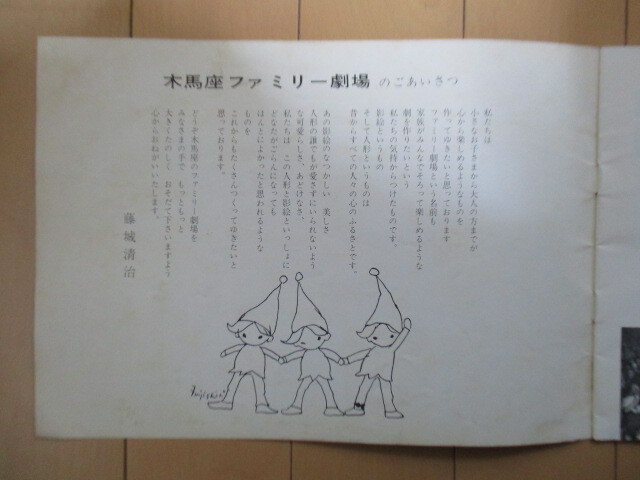 木馬座ファミリー劇場 のごあいさつ
私たちは
小さなお子さまから大人の方までが
心から楽しめるようなものを
作ってゆきたいと思っております
ファミリー劇場という名前も
家族がみんなでそろって楽しめるような
劇を作りたいという
私たちの気持からつけたものです。
影絵というもの
そして人形というものは
昔からすべての人々の心のふるさとです。
あの影絵のなつかしい 美しさ
人形の誰でもが愛さずにいられないよう
な可愛らしさ、あどけなさ、
私たちは この人形と影絵といっしょに
どなたがごらんになっても
ほんとによかったと思われるような
ものを
これからもたくさんつくってゆきたいと
思っております。
どうぞ木馬座のファミリー劇場を
みなさまの手で もっともっと
大きくたのしく おそだて下さいますよう
心からおねがいいたします。
藤城清治